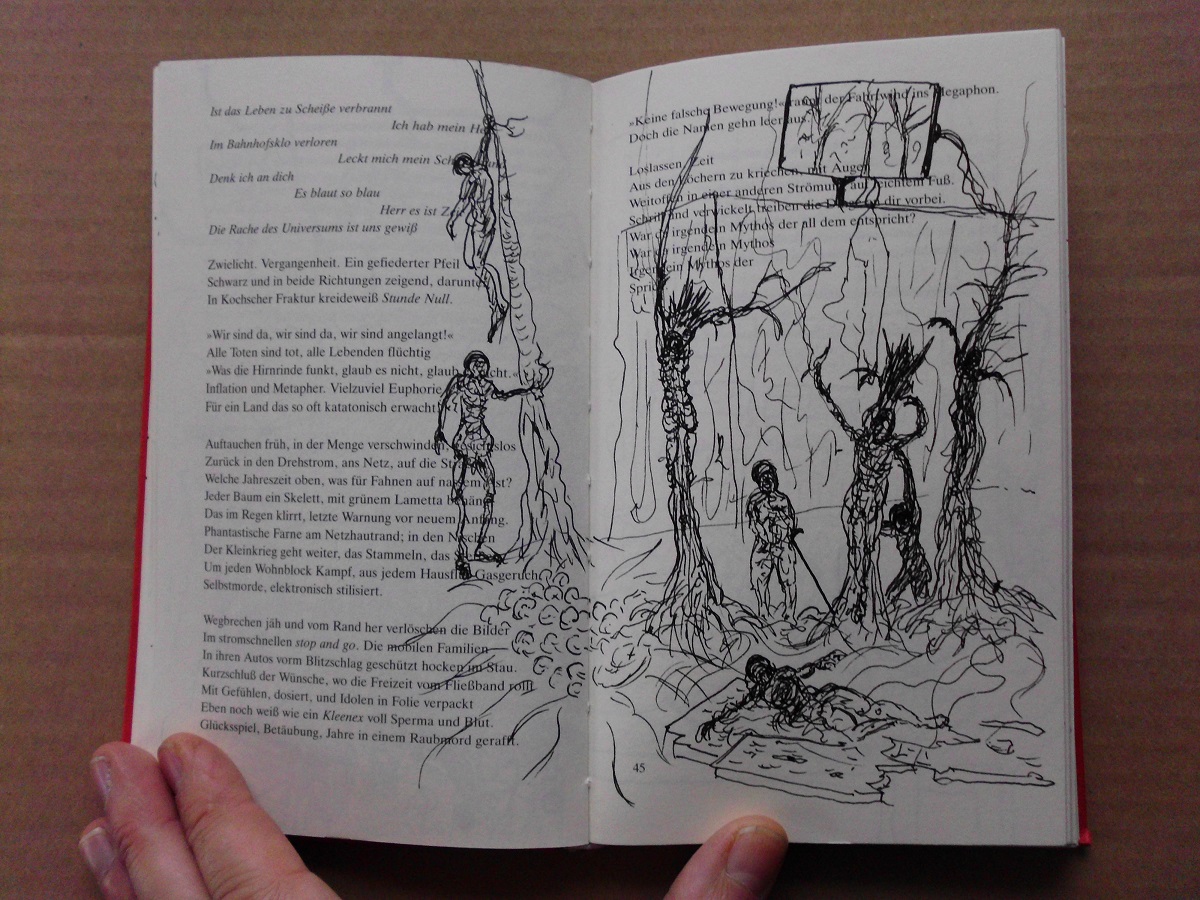 Ist das Leben zu Scheiße verbrannt
Ich hab mein
Im Bahnhofsklo verloren
Leckt mich mein
Denk ich an dich
Es blaut so blau
Herr es ist Zeit
Die Rache des Universums ist uns gewiß
Zwielicht. Vergangenheit. Ein gefiederter Pfeil
Schwarz und in beide Richtungen zeigend, darunter
In Kochscher Fraktur kreideweiß Stunde Null.
»Wir sind da, wir sind da, wir sind angelangt!«
Alle Toten sind tot, alle Lebenden flüchtig
»Was die Hirnrinde funkt, glaub es nicht, glaub es nicht.«
Inflation und Metapher. Vielzuviel Euphorie
Für ein Land das so oft katatonisch erwacht!
Auftauchen früh, in der Menge verschwinden, gesichtslos
Zurück in den Drehstrom, ans Netz, auf die
Welche Jahreszeit oben, was für Fahnen auf nassem Ast?
Jeder Baum ein Skelett, mit grünem Lametta behängt
Das im Regen klirrt, letzte Warnung vor neuem Anfang.
Phantastische Farne am Netzhautrand; in den Nischen
Der Kleinkrieg geht weiter, das Stammeln, das
Um jeden Wohnblock Kampf, aus jedem Hausflur Gasgeruch,
Selbstmorde, elektronisch stilisiert.
Wegbrechen jäh und vom Rand her verlöschen die Bilder
Im stromschnellen stop and go. Die mobilen Familien
In ihren Autos vorm Blitzschlag geschützt hocken im Stau.
Kurzschluß der Wünsche, wo die Freizeit vom Fließband rollt
Mit Gefühlen, dosiert, und Idolen in Folie verpackt
Eben noch weiß wie ein Kleenex voll Sperma und Blut.
Glücksspiel, Betäubung, Jahre in einem Raubmord gerafft.
»Keine falsche Bewegung!« rang der Fahrtwind ins Megaphon.
Doch die Namen gehn leer aus.
Loslassen, Zeit
Aus den Löchern zu kriechen, mit Augen
Weitoffen in einer anderen Strömung auf leichtem Fuß.
Schritt und verwickelt treiben die Dinge an dir vorbei.
War es irgendein Mythos der all dem entspricht?
War es irgendein Mythos
Irgendein Mythos der
45